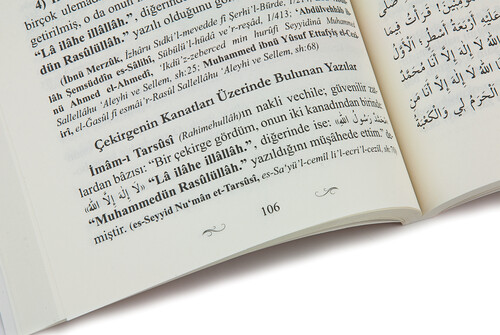 4)
birçok ulemâdan
getirilmiş, o da onun
"Lâ ilâhe illâllâh.", diğerinde
dün Rasûlüllâh." yazılı olduğunu gör
(İbnü Merzûk, İzhâru Sıdki'l-mevedde fî Şerhi'l-Bürde, 1/21
lâh Şemsüddîn es-Sâlihî, Sübülü'l-hüdâ ve'r-reşâd, 1/413;
nü Ahmed el-Ahmedî, 'Ikdü'z-zeberced min hurûfi Seyyidinâ Muhammed
Sallellahu 'Aleyhi ve Sellem, sh:25; Muhammed ibnü Yûsuf Ettafyiş el-Cezâ
irî, el-Gasûl fî esmâi'r-Rasûl Sallellahu 'Aleyhi ve Sellem, sh:68)
Çekirgenin Kanatları Üzerinde Bulunan Yazılar
İmâm-ı Tarsûsî (Rahimehullâh)ın nakli vechile; güvenilir za
lardan bâzısı: "Bir çekirge gördüm, onun iki kanadından birinde:
«لَا إِلَهَ إِلَّا اللهُ» "Lâ ilâhe illâllâh.", diğerinde ise: رَسُولُ اللهِ
"Muhammedün Rasûlüllâh." yazıldığını müşâhede ettim." de
miştir. (es-Seyyid Nu'mân et-Tarsûsî, es-Sa'yü'l-cemîl li'l-ecri'l-cezîl, sh:
106
صَلَّى
قَرَأْتُ فِيمَا
أَرْبَعَةَ أَسْطُرٍ: الْأَوَّلُ
اللهُ لَا إِلَهَ إِلَّا أَنَا
لَا إِلَهَ إِلَّا أَنَا مُحَمَّدٌ
إِلَّا أَنَا مَنِ
الْحَرَمُ لِي وَالْكَعْبَةُ